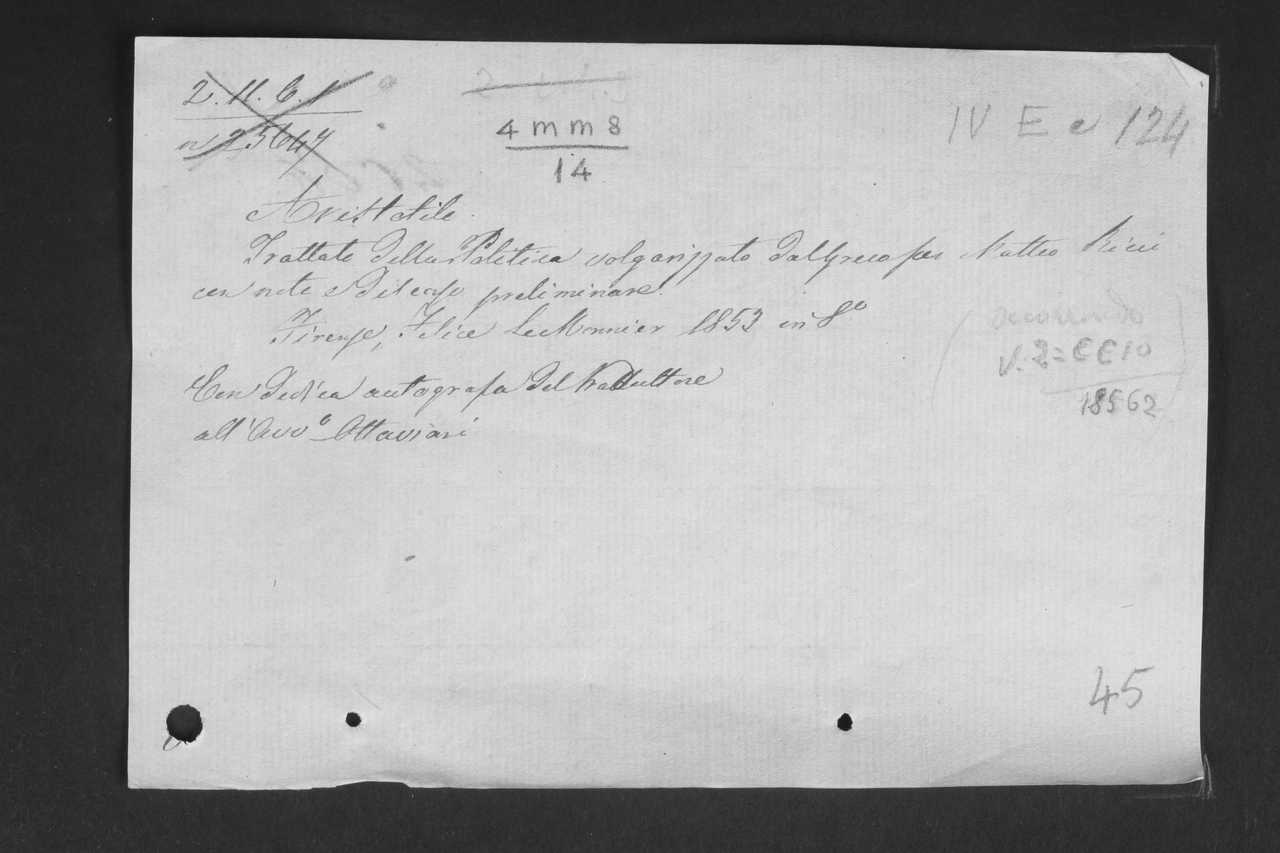 2. 11. C. 1
n 25647
4 m m 8
14
IV E e 124
Aristotile.
Trattato della Politica volgarizzato dal greco per Matteo Ricci
con note e discorso preliminare.
Firenze, Felice Le Monnier 1853 in 8°
V. 2 = E E 10
18562
Con dedica autografa del traduttore
all'Avv.o Ottaviani
45